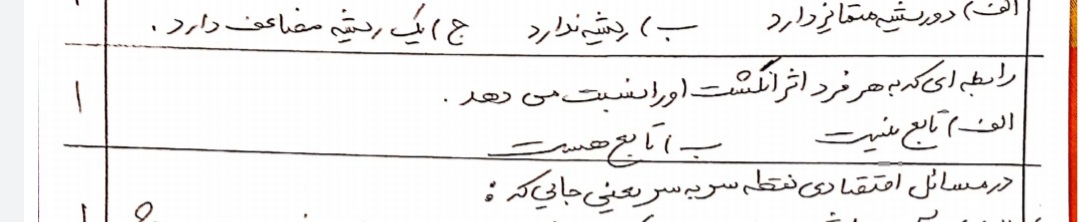 الف) دو ریشه متمایز دارد    ب) ریشه ندارد    ج) یک ریشه مضاعف دارد .
رابطه ای که به هر فرد اثر انگشت او را نسبت می دهد .
۱
الف) تابع نیست    ب) تابع هست
در مسائل اقتصادی نقطه سر به سر یعنی جایی که :